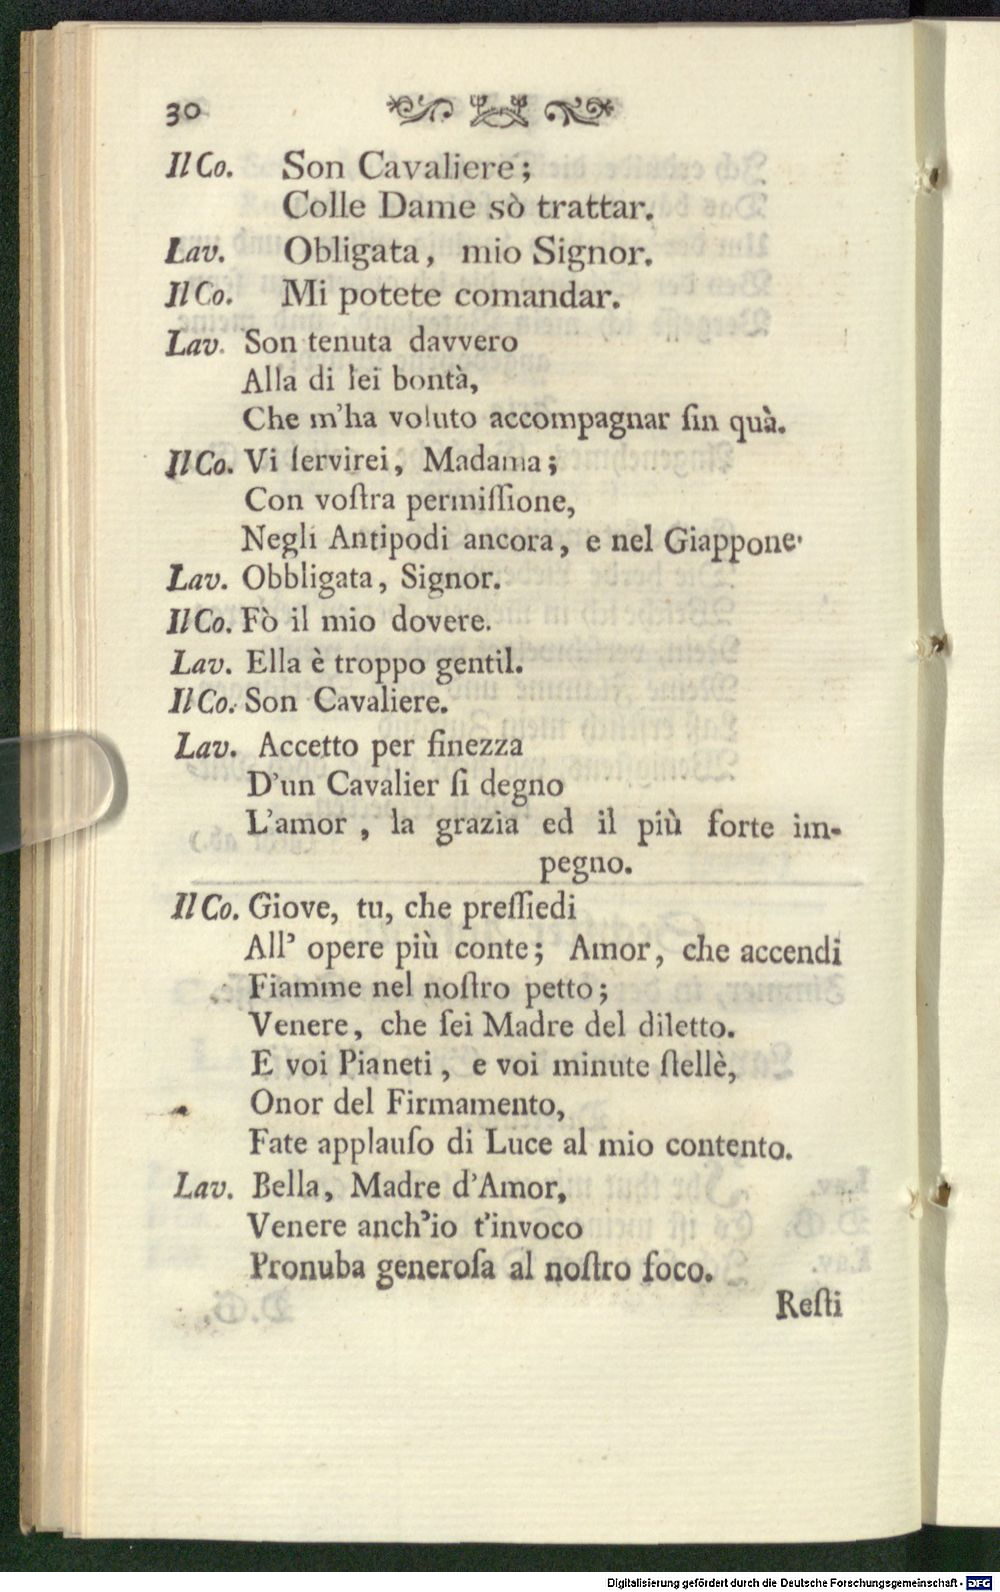 30
Il Co. Son Cavaliere;
Colle Dame sò trattar.
Lav. Obligata, mio Signor.
Il Co. Mi potete comandar.
Lav. Son tenuta davvero
Alla di lei bontà,
Che m'ha voluto accompagnar ſin quà.
Il Co. Vi ſervirei, Madama;
Con voſtra permiſſione,
Negli Antipodi ancora, e nel Giappone.
Lav. Obbligata, Signor.
Il Co. Fò il mio dovere.
Lav. Ella è troppo gentil.
Il Co. Son Cavaliere.
Lav. Accetto per finezza
D'un Cavalier ſi degno
L'amor, la grazia ed il più forte im-
pegno.
Il Co. Giove, tu, che preſſiedi
All' opere più conte; Amor, che accendi
Fiamme nel noſtro petto;
Venere, che ſei Madre del diletto.
E voi Pianeti, e voi minute ſtellè,
Onor del Firmamento,
Fate applauſo di Luce al mio contento.
Lav. Bella, Madre d'Amor,
Venere anch'io t'invoco
Pronuba generoſa al noſtro foco.
Reſti
Digitalisierung gefördert durch die Deutsche Forschungsgemeinschaft - DFG